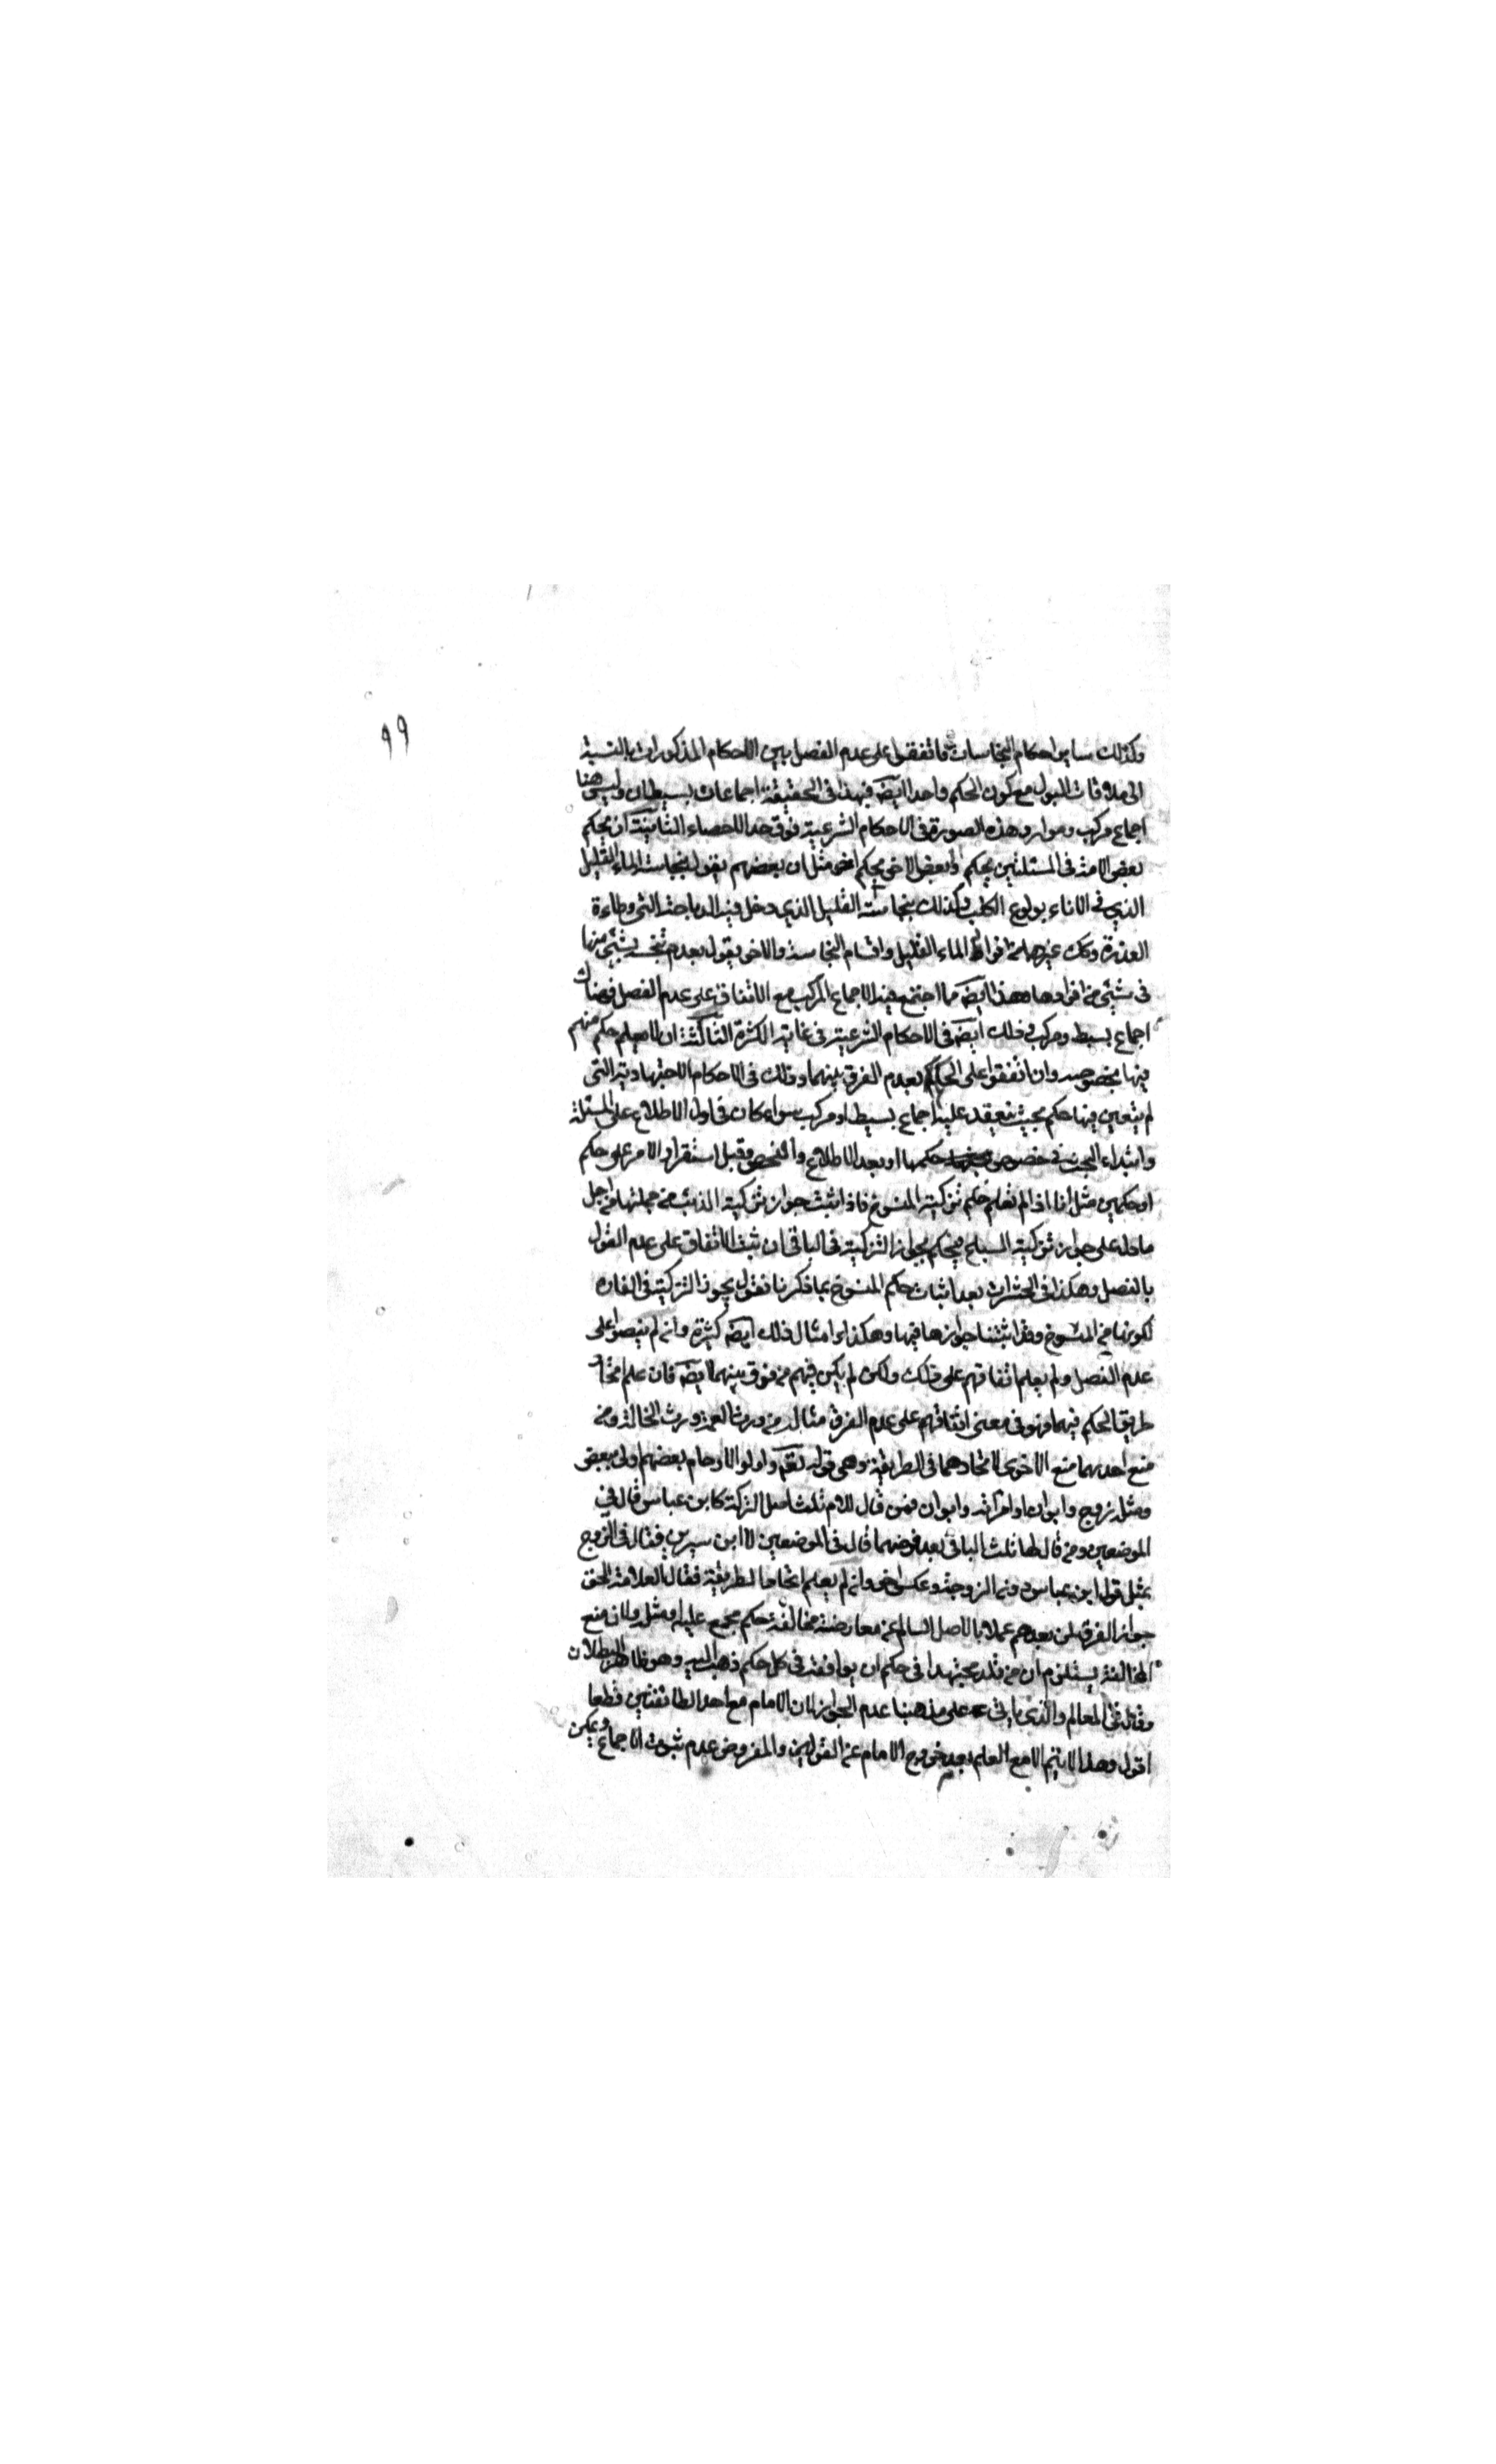 ٩٩
وكذلك ساير احكام النجاسات فاتفقوا على عدم الفصل بين الاحكام المذكورات بالنسبة
الى ملاقات البول مع كون الحكم واحدا ايضَ فهذا فى الحقيقة اجماعان بسيطان وليس هنا
اجماع مركب وموارد هذه الصورة فى الاحكام الشرعية فوق حد الاحصاء الثانية ان يحكم
بعض الامة فى المسئلتين بحكم وبعض الاخر بحكم اخر مثل ان بعضهم يقول بنجاسة الماء القليل
الذي فى الاناء بولوغ الكلب وكذلك بنجاسة القليل الذي دخل فيه الدجاجة التى وطاءة
العذرة وكك غيرهما من افراد الماء القليل واقسام النجاسة والاخر يقول بعدم تنجسه بشئ منها
فى شئ من افرادها وهذا ايضَ مما اجتمع فيه الاجماع المركب مع الاتفاق على عدم الفصل فهناك
اجماع بسيط ومركب وذلك ايضَ فى الاحكام الشرعية فى غاية الكثرة الثالثة ان لا يعلم حكم منهم
فيها بخصوصه وان اتفقوا على الحكم بعدم الفرق بينهما وذلك فى الاحكام الاجتهادية التى
لم يتعين فيها حكم بحيث ينعقد عليه اجماع بسيط او مركب سواء كان فى اول الاطلاع على المسئلة
وابتداء البحث فى خصوص حكمها او بعد الاطلاع والفحص وقبل استقرار الامر على حكم
او حكمين مثل انا اذا لم نعلم حكم تزكية المسوخ فاذا ثبت جواز تزكية الذئب من جملتها من اجل
ما دل على جواز تزكية السباع فيحكم بجواز التزكية فى الباقى ان ثبت الاتفاق على عدم القول
بالفصل وهكذا فى الحشرات بعد اثبات حكم المسوخ بما ذكرنا نقول يجوز التزكية فى الفارة
لكونها من المسوخ وقد اثبتنا جوازها فيها وهكذا وامثال ذلك ايضَ كثيرة وان لم ينصوا على
عدم الفصل ولم يعلم اتفاقهم على ذلك ولكن لم يكن فيهم من فرق بينهما ايضَ فان علم اتحاد
طريق الحكم فيهما فهو فى معنى اتفاقهم على عدم الفرق مثاله من ورث العمة ورث الخالة ومن
منع احديهما منع الاخرى لاتحادهما فى الطريقة وهى قوله تعَ واولوا الارحام بعضهم اولى ببعض
ومثل زوج وابوان او امراة وابوان فمن قال للام ثلث اصل التركة كابن عباس قال فى
الموضعين ومن قال لها ثلث الباقى بعد فرضهما قال فى الموضعين الا ابن سيرين فقال فى الزوج
بمثل قول ابن عباس دون الزوجة وعكس اخر وان لم يعلم اتحاد الطريقة فقال العلامة الحق
جواز الفرق لمن بعدهم عملا بالاصل السالم عن معارضة مخالفة حكم مجمع عليه او مثله ولان منع
المخالفة يستلزم ان من قلد مجتهدا فى حكم ان يوافقه فى كل حكم ذهب اليه وهو ظاهر البطلان
وقال فى المعالم والذى ياتى على مذهبنا عدم الجواز لان الامام مع احد الطائفتين قطعا
اقول وهذا لا يتم الا مع العلم بعدم خروج الامام عن القولين والمفروض عدم ثبوت الاجماع ويمكن